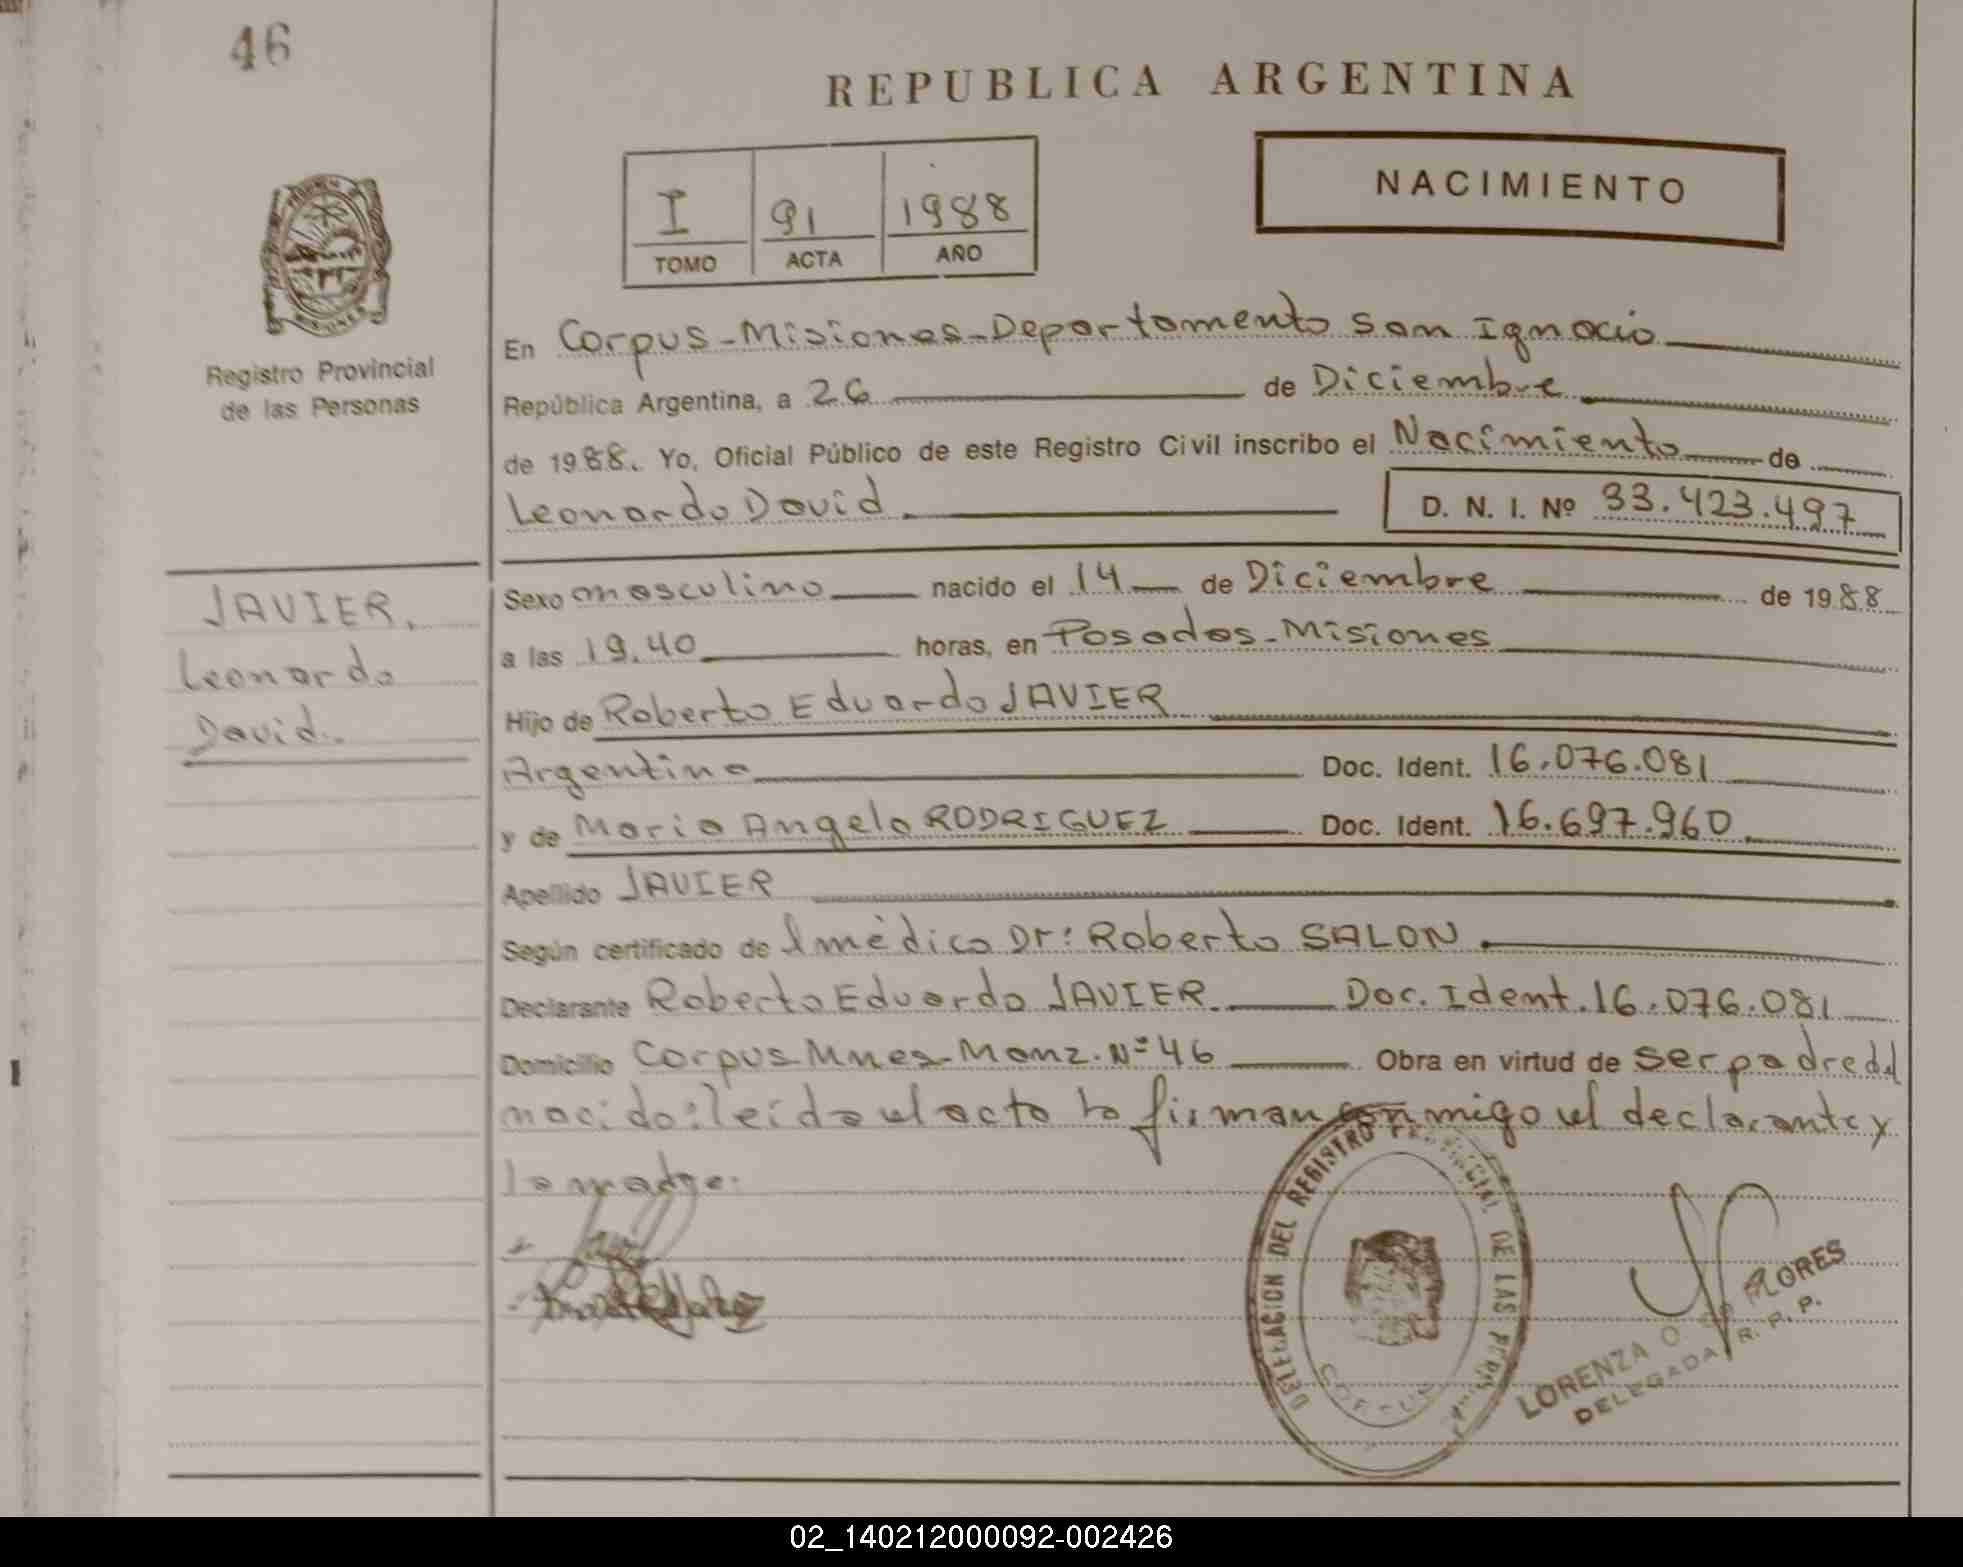 46
REPUBLICA ARGENTINA
NACIMIENTO
I 91 1988
TOMO ACTA AÑO
Registro Provincial
de las Personas
En Corpus-Misiones-Departamento San Ignacio
República Argentina, a 26 de Diciembre
de 1988. Yo, Oficial Público de este Registro Civil inscribo el Nacimiento de
Leonardo David D. N. I. Nº 33.423.497
JAVIER,
Leonardo
David.
Sexo masculino nacido el 14 de Diciembre de 1988
a las 19.40 horas, en Posadas-Misiones
Hijo de Roberto Eduardo JAVIER
Argentino Doc. Ident. 16.076.081
y de Maria Angela RODRIGUEZ Doc. Ident. 16.697.960
Apellido JAVIER
Según certificado de l médico Dr: Roberto SALON
Declarante Roberto Eduardo JAVIER. Doc. Ident. 16.076.081
Domicilio Corpus Mnes-Manz. Nº 46 Obra en virtud de ser padre del
nacido: leida el acta la firman conmigo el declarante y
la madre.
DELEGACION DEL REGISTRO PROVINCIAL DE LAS
LORENZA FLORES
DELEGADA R. P. P.
02_140212000092-002426